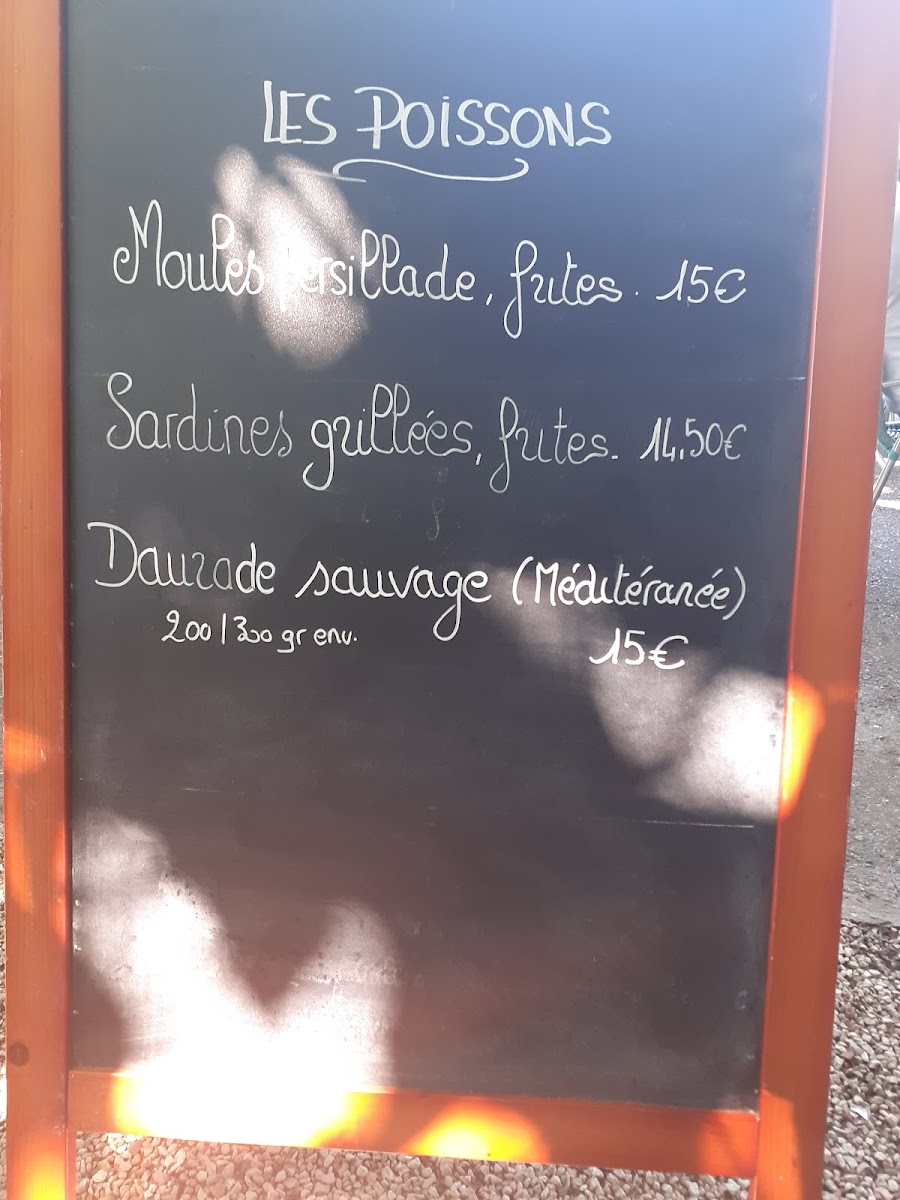 LES POISSONS
Moules persillade, frites. 15€
Sardines grillées, frites. 14,50€
Daurade sauvage (Méditéranée)
200/300 gr env. 15€